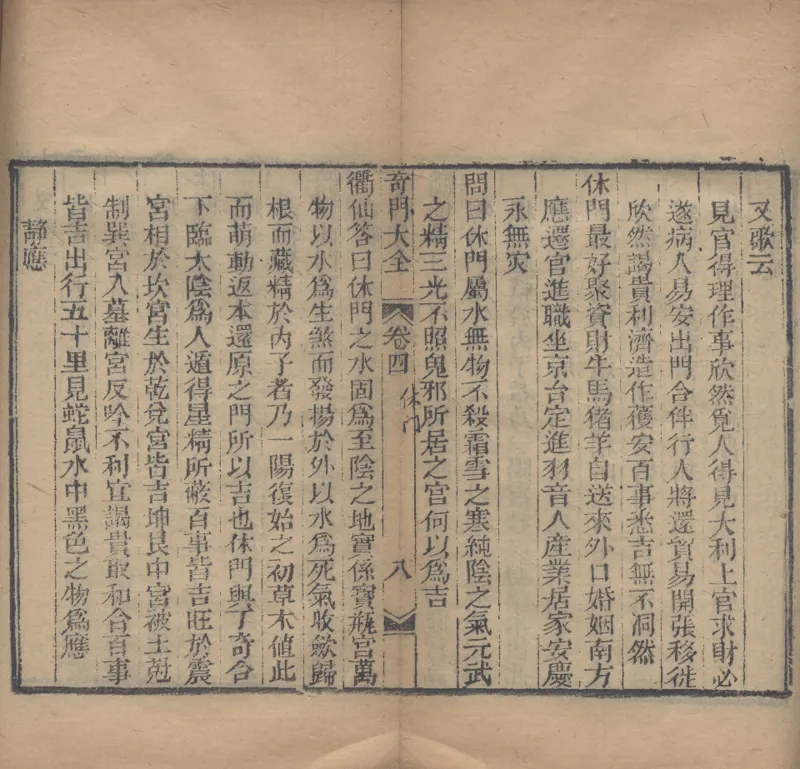 又歌云
見官得理作事欣然覓人得見大利上官求財必
遂病人易安出門合伴行人將還貿易開張移徙
欣然謁貴利濟造作獲安百事悉吉無不洞然
休門最好聚資財牛馬猪羊自送來外口婚姻南方
應還官進職坐京台定進羽音人産業居家安慶
永無灾
問曰休門屬水無物不殺霜雪之寒純陰之氣元武
之精三光不照鬼邪所居之官何以爲吉
奇門大全 卷四 休门 八
衢仙答曰休門之水固爲至陰之地實係寶瓶宮萬
物以水爲生煞而發揚於外以水爲死氣收歛歸
根而藏精於內子者乃一陽復始之初草木値此
而萌動返本還原之門所以吉也休門與子奇合
下臨太陰爲人遁得星精所蔽百事皆吉旺於震
宮相於坎宮生於乾兌宮皆吉坤艮中宮被土尅
制巽宮入墓離宮反吟不利宜謁貴取和合百事
皆吉出行五十里見蛇鼠水中黑色之物爲應
靜應